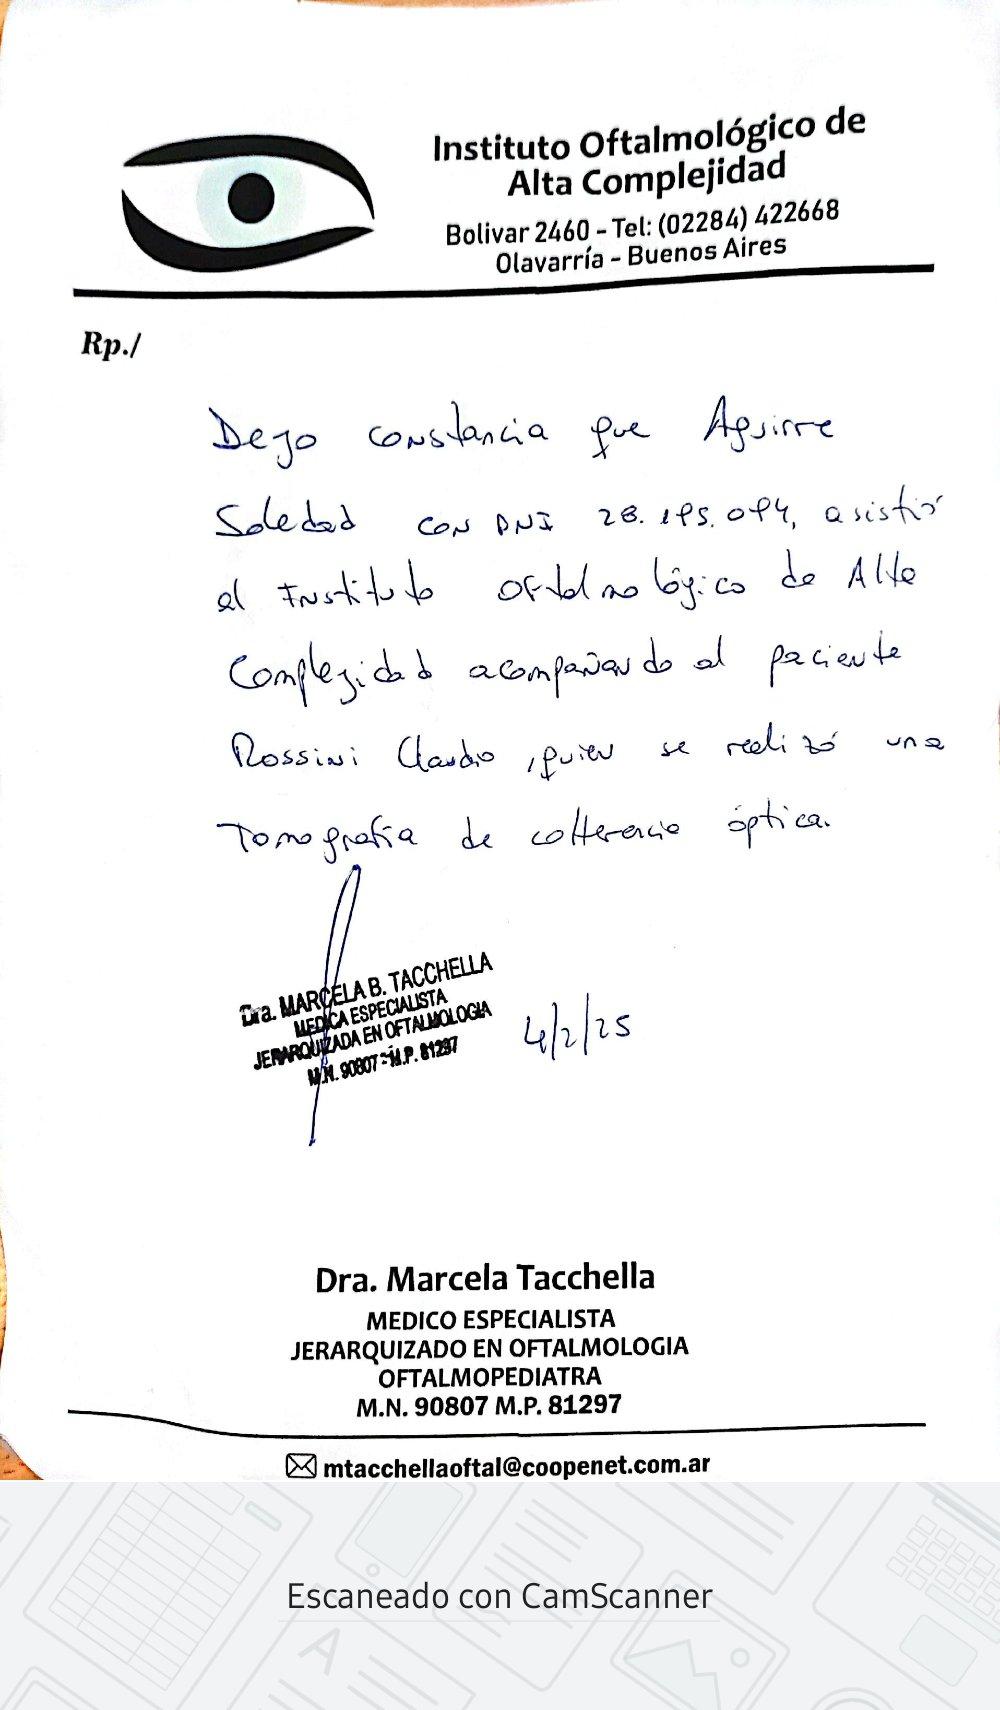 Instituto Oftalmológico de
Alta Complejidad
Bolivar 2460 - Tel: (02284) 422668
Olavarría - Buenos Aires
Rp./
Dejo constancia que Aguirre
Soledad con DNI asistió
al Instituto Oftalmológico de Alta
Complejidad acompañando al paciente
Rossini Claudio, quien se realizó una
Tomografía de coherencia óptica.
Dra. MARCELA B. TACCHELLA
MEDICA ESPECIALISTA
JERARQUIZADA EN OFTALMOLOGIA
M.N. 90807 - M.P. 81297
4/2/25
Dra. Marcela Tacchella
MEDICO ESPECIALISTA
JERARQUIZADO EN OFTALMOLOGIA
OFTALMOPEDIATRA
M.N. 90807 M.P. 81297
mtacchellaoftal@coopenet.com.ar
Escaneado con CamScanner